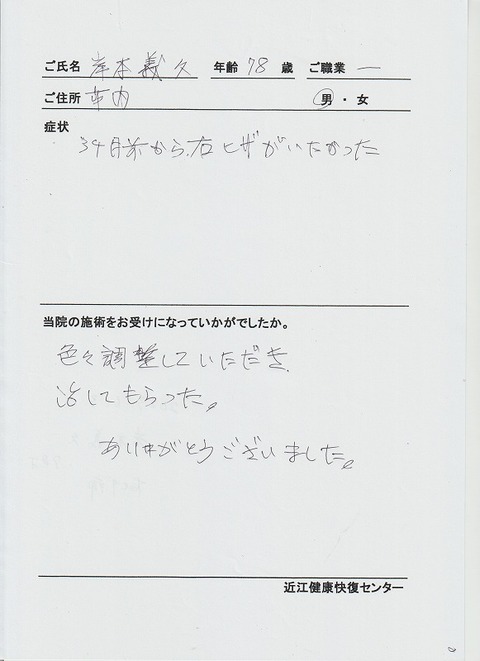 ご氏名 岸本義久 年齢 78 歳 ご職業 ー
ご住所 市内 男・女
症状
34月前から、右ヒザがいたかった
当院の施術をお受けになっていかがでしたか。
色々調整していただき、
治してもらった。
ありがとうございました。
近江健康快復センター